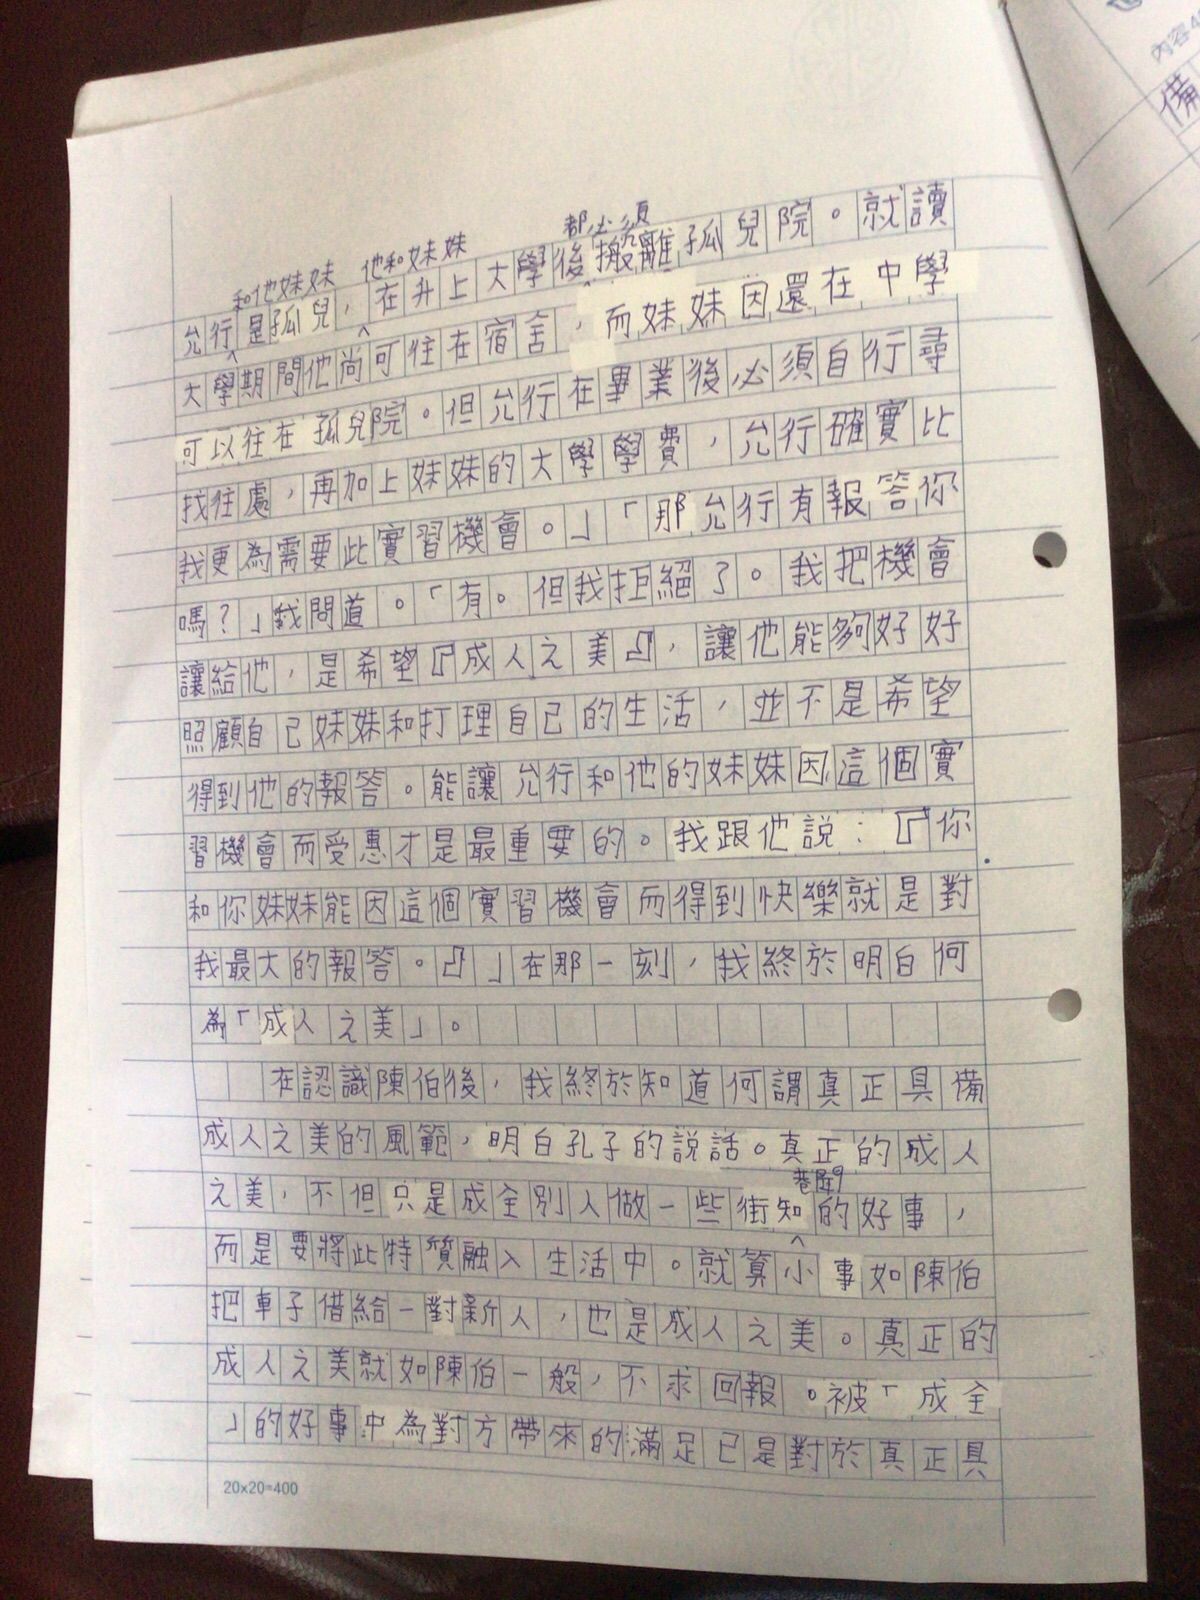 都必須
和他妹妹 他和妹妹
允行是孤兒，在升上大學後搬離孤兒院。就讀
大學期間他尚可往在宿舍，而妹妹因還在中學
可以往在孤兒院。但允行在畢業後必須自行尋
找往處，再加上妹妹的大學學費，允行確實比
我更為需要此實習機會。」「那允行有報答你
嗎？」我問道。「有。但我拒絕了。我把機會
讓給他，是希望『成人之美』，讓他能夠好好
照顧自己妹妹和打理自己的生活，並不是希望
得到他的報答。能讓允行和他的妹妹因這個實
習機會而受惠才是最重要的。我跟他説：『你
和你妹妹能因這個實習機會而得到快樂就是對
我最大的報答。』」在那一刻，我終於明白何
為「成人之美」。
在認識陳伯後，我終於知道何謂真正具備
成人之美的風範，明白孔子的説話。真正的成人
巷聞
之美，不但只是成全別人做一些街知的好事，
而是要將此特質融入生活中。就算小事如陳伯
把車子借給一對新人，也是成人之美。真正的
成人之美就如陳伯一般，不求回報。被「成全
」的好事中為對方帶來的滿足已是對於真正具
20x20=400
內容4
備